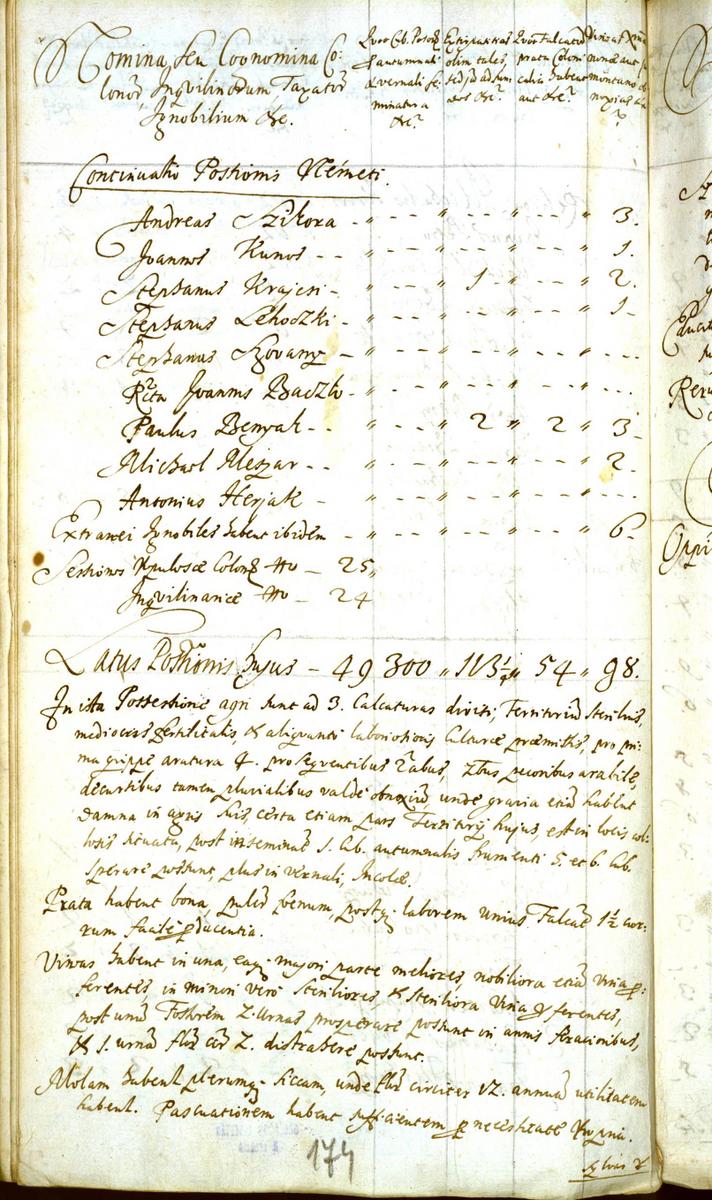 Nomina, seu Cognomina Co-
lonor, Inqvilinorum Taxator
Ignobilium &c.
Qvot Cub. Poson
autumnali
& vernali se-
minatura
&c?
Extirpatitias
olim tales,
Qvot Falcator
prata Coloni
Inhabent
aut &c?
Continuatio Possionis Németi.
Andreas Szikora - " - - " - - " - - " 3.
Joannes Kunos - - " - - " - - " - - " 1.
Stephanus Krajcsi - " - - " 1 " - - " 2.
Stephanus Lehoczki - " - - " - - " - - " 1-
Stephanus Szovany - " - - " - - " - - " ...
Rcta Joannis Baczko - " - - " - - " - - " ...
Paulus Benyak - - " - - " 2 " 2 " 3-
Michael Meszar - - " - - " - - " - - " 2-
Antonius Herjak - " - - " - - " - - " ...
Extranei Ignobiles habent ibidem - " - - " - - " - - " 6-
Sessiones Colon No - 25,
Inqvilinariae No - 24
Latus Possionis hujus - 49 300 " 113 1/4 " 54 " 98.
In ista Possessione agri sunt ad 3. Calcaturas divisi, Territorium sterilius,
mediocris fertilitatis, & aliqvanti laboriosioris Culturae praemissis, pro pri-
ma qvippe aratura 4. pro seqventibus 2abus, 2bus pecoribus arabile,
decursibus tamen pluvialibus valde obnoxiu, unde gravia etia habent
damna in agris suis, certa etiam pars Territorij hujus, est in locis col-
losis situata, post inseminat 1. Cub. autumnalis frumenti 5. et 6. Cub.
sperare possunt, plus in vernali, Incolae.
Prata habent bona, pulchr foenum, postq laborem unius Falcat 1½ cur-
rum facile producentia.
Vineas habent in una, eaq majori parte meliores, nobiliora etia vina p-
ferentes, in minori vero steriliores & steriliora Vina p ferentes,
post una Fossorem 2. Urnas prosperare possunt in annis feracioribus,
& 1. urna flor cir 2. distrahere possunt.
Molam habent plerumq siccam, unde flor circiter 12. annua utilitatem
habent. Pascuationem habent sufficientem p necessitate
Sylvas &
174